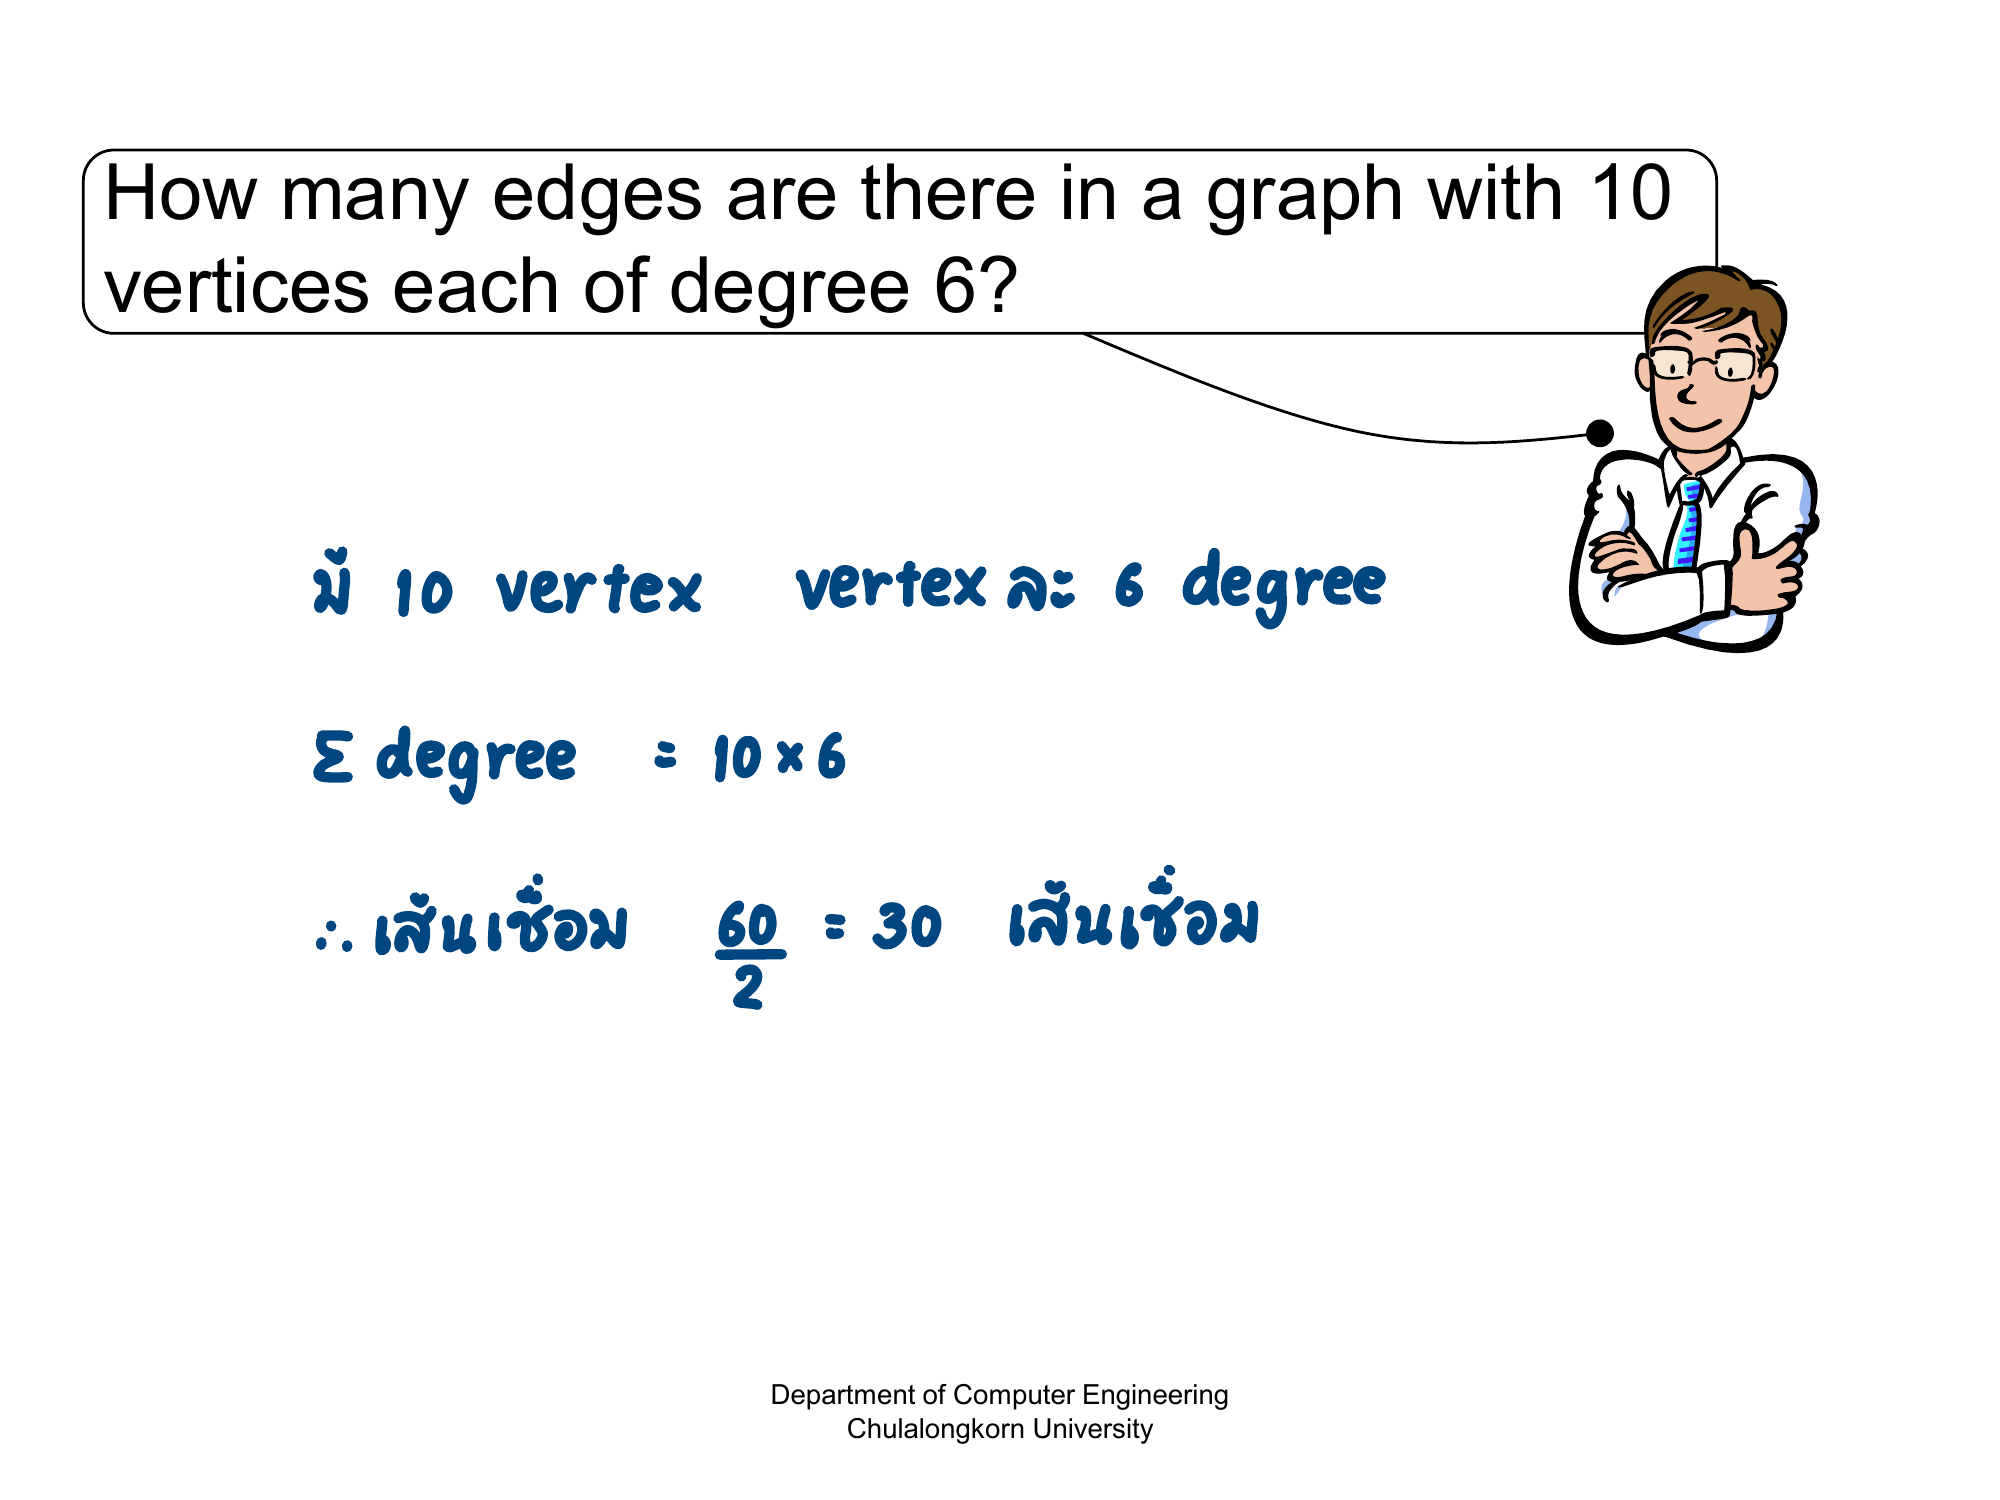 How many edges are there in a graph with 10
vertices each of degree 6?
มี 10 vertex vertex ละ 6 degree
Σ degree = 10 × 6
∴ เส้นเชื่อม 60/2 = 30 เส้นเชื่อม
Department of Computer Engineering
Chulalongkorn University